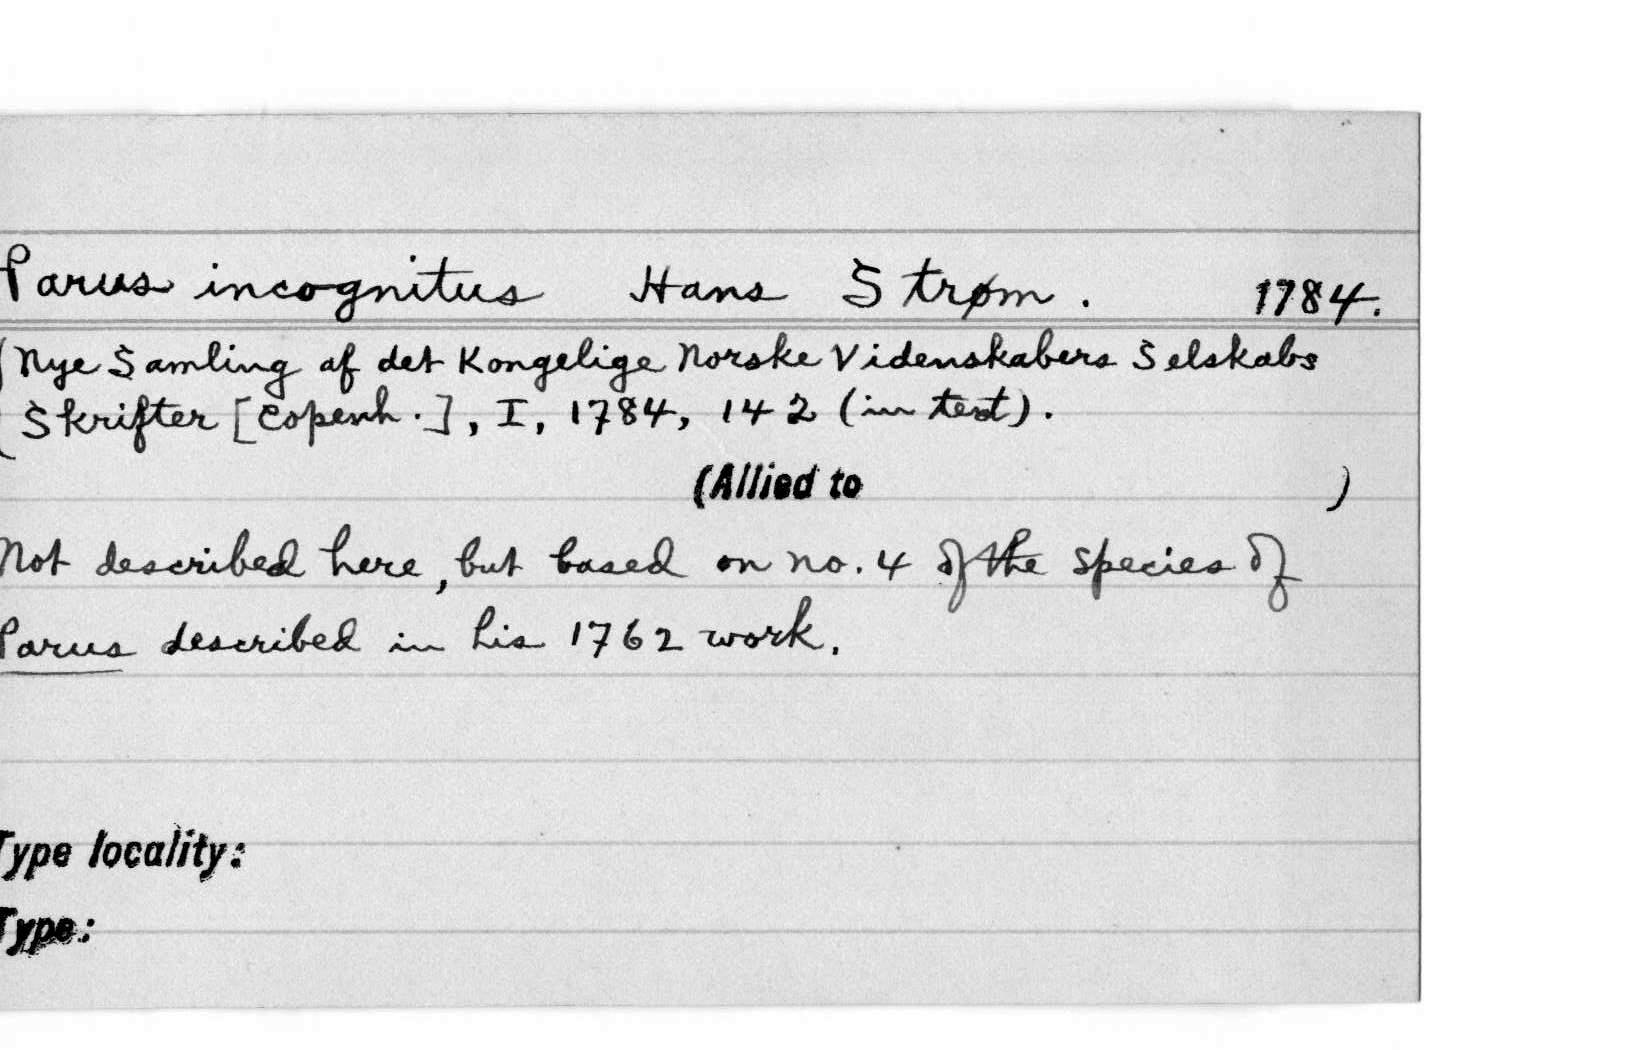 Parus incognitus Hans Strøm. 1784.
(Nye Samling af det Kongelige Norske Videnskabers Selskabs
Skrifter [Copenh.], I, 1784, 142 (in text).
(Allied to )
Not described here, but based on no. 4 of the species of
Parus described in his 1762 work.
Type locality:
Type: